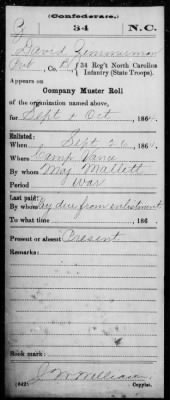 (Confederate.)
Z 34 N.C.
David Zimmerman
Pvt, Co. B, 34 Reg't North Carolina
Infantry (State Troops).
Appears on
Company Muster Roll
of the organization named above,
for Sept & Oct, 1864.
Enlisted:
When Sept 26, 186
Where Camp Vance
By whom Maj Mallett
Period war
Last paid:
By whom Pay due from enlistment
To what time , 186 .
Present or absent Present
Remarks:
Book mark:
J W William
(642) Copyist.